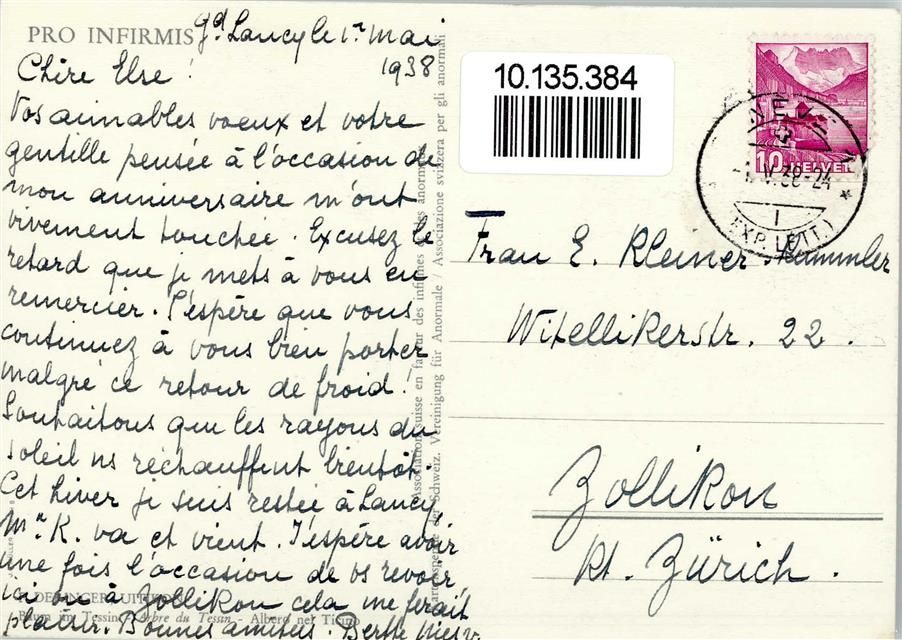 PRO INFIRMIS
gd. Lancy le 1er Mai
1938
Chère Else !
Vos aimables voeux et votre
gentille pensée à l'occasion de
mon anniversaire m'ont
vivement touchée. Excusez le
retard que je mets à vous en
remercier. J'espère que vous
continuez à vous bien porter
malgré ce retour de froid !
Souhaitons que les rayons du
soleil ns réchauffent bientôt.
Cet hiver je suis restée à Lancy,
Mr K. va et vient. J'espère avoir
une fois l'occasion de vs revoir
ici ou à Zollikon cela me ferait
plaisir. Bonnes amitiés. Berthe
Baum im Tessin - Arbre du Tessin - Albero nel Ticino
Association suisse en faveur des infirmes et des anormaux
Schweiz. Vereinigung für Anormale / Associazione svizzera per gli anormali
10.135.384
10 HELVETIA
38-24
I
EXP. LETT.
Frau E. Kleiner
Witellikerstr. 22.
Zollikon
Kt. Zürich.